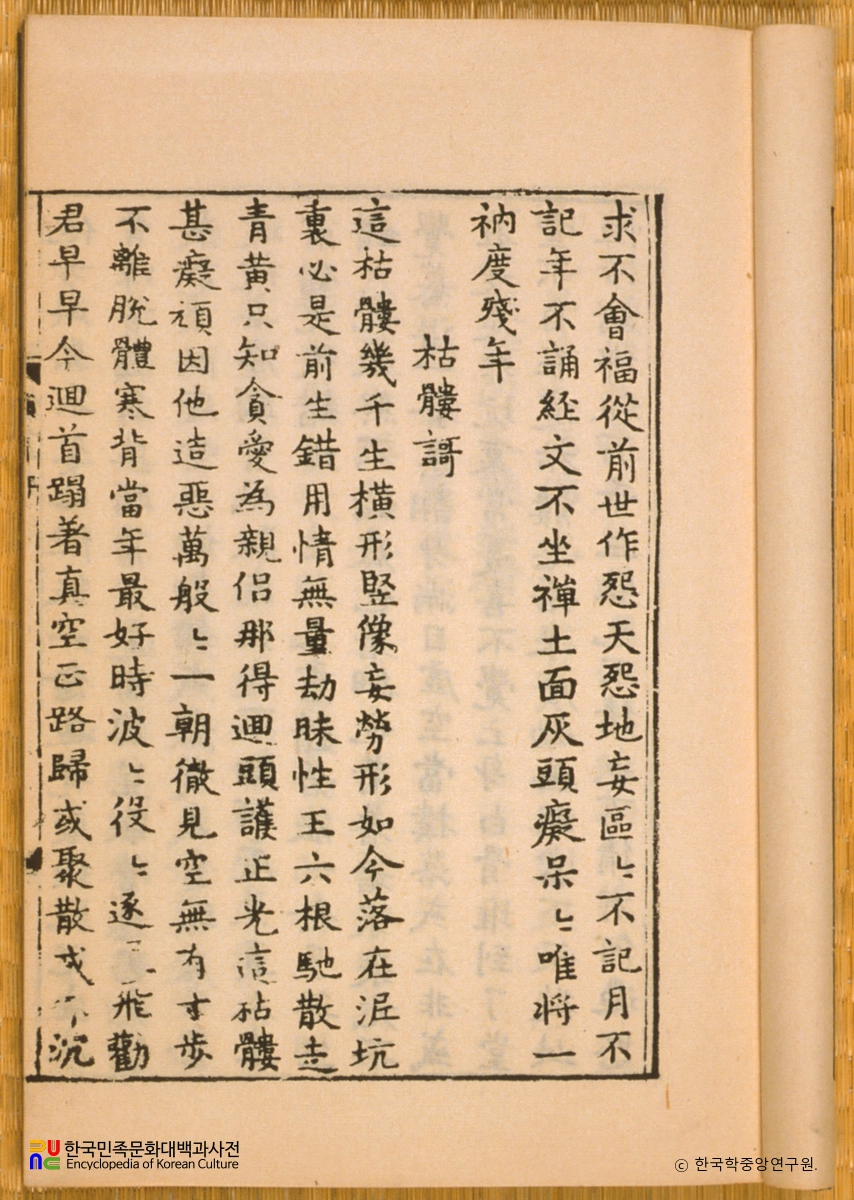 求不會福從前世作怨天怨地妄區〻不記月不
記年不誦経文不坐禪土面灰頭癡呆〻唯将一
衲度殘年
枯髏謌
這枯髏幾千生橫形竪像妄勞形如今落在泥坑
裏必是前生錯用情無量劫昧性王六根馳散走
青黃只知貪愛為親侣那得廻頭護正光這枯髏
甚癡頑因他造惡萬般〻一朝徹見空無有寸步
不離脫體寒背當年最好時波〻役〻逐飛勸
君早早今廻首蹋著真空正路歸或聚散或沉
한국민족문화대백과사전
Encyclopedia of Korean Culture
ⓒ 한국학중앙연구원.